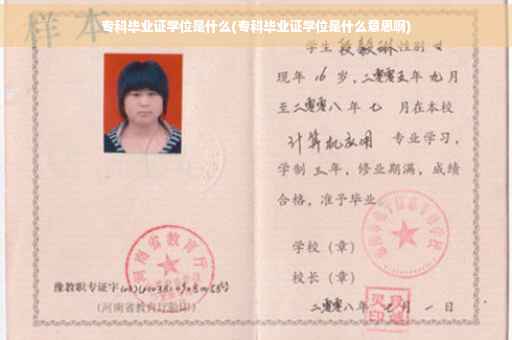 专科毕业证学位是什么(专科毕业证学位是什么意思啊)
样本
学生 段毅琳 性别 女
现年 16 岁，二零零五年 九 月
至二零零八年 七 月在本校
计算机应用 专业学习，
学制 三 年，修业期满，成绩
合格，准予毕业
学校（章）
校长（章）
二零零八年 七 月 一 日
河南省教育厅
豫教职专证字
(河南省教育厅验印)